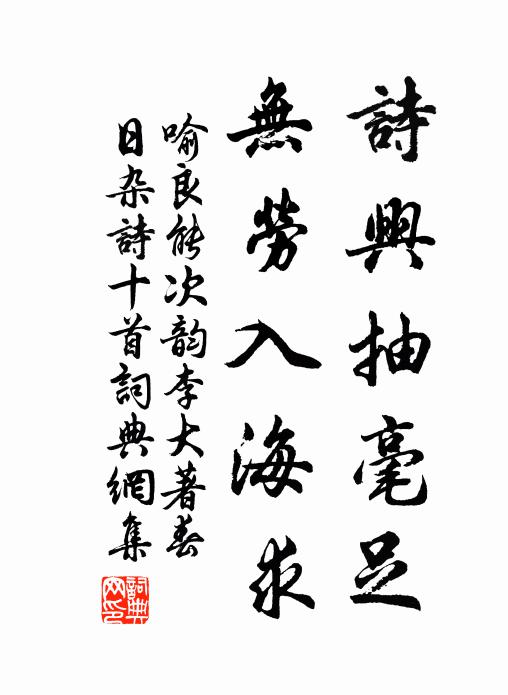 詩興抽毫足
無勞入海求
喻良能次韵李大著春
日杂詩十首詞典網集
詞典網印